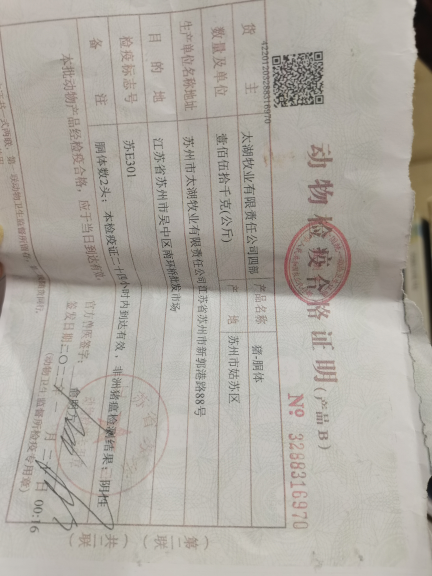 动物检疫合格证明(产品B)
4220120328831697​0
№ 3288316970
货主 太湖牧业有限责任公司四部 产品名称 猪-胴体
数量及单位 壹佰伍拾千克(公斤) 产地 苏州市姑苏区
生产单位名称地址 苏州市太湖牧业有限责任公司江苏省苏州市新郭港路88号
目的地 江苏省苏州市吴中区南环桥批发市场
检疫标志号 苏E301
备注 胴体数2头; 本检疫证二十四小时内到达有效, 非洲猪瘟检测结果: 阴性
本批动物产品经检疫合格, 应于当日到达有效。
官方兽医签字:
签发日期 二〇 月 日 00:16
(动物卫生监督所检疫专用章)
第二联
共二联